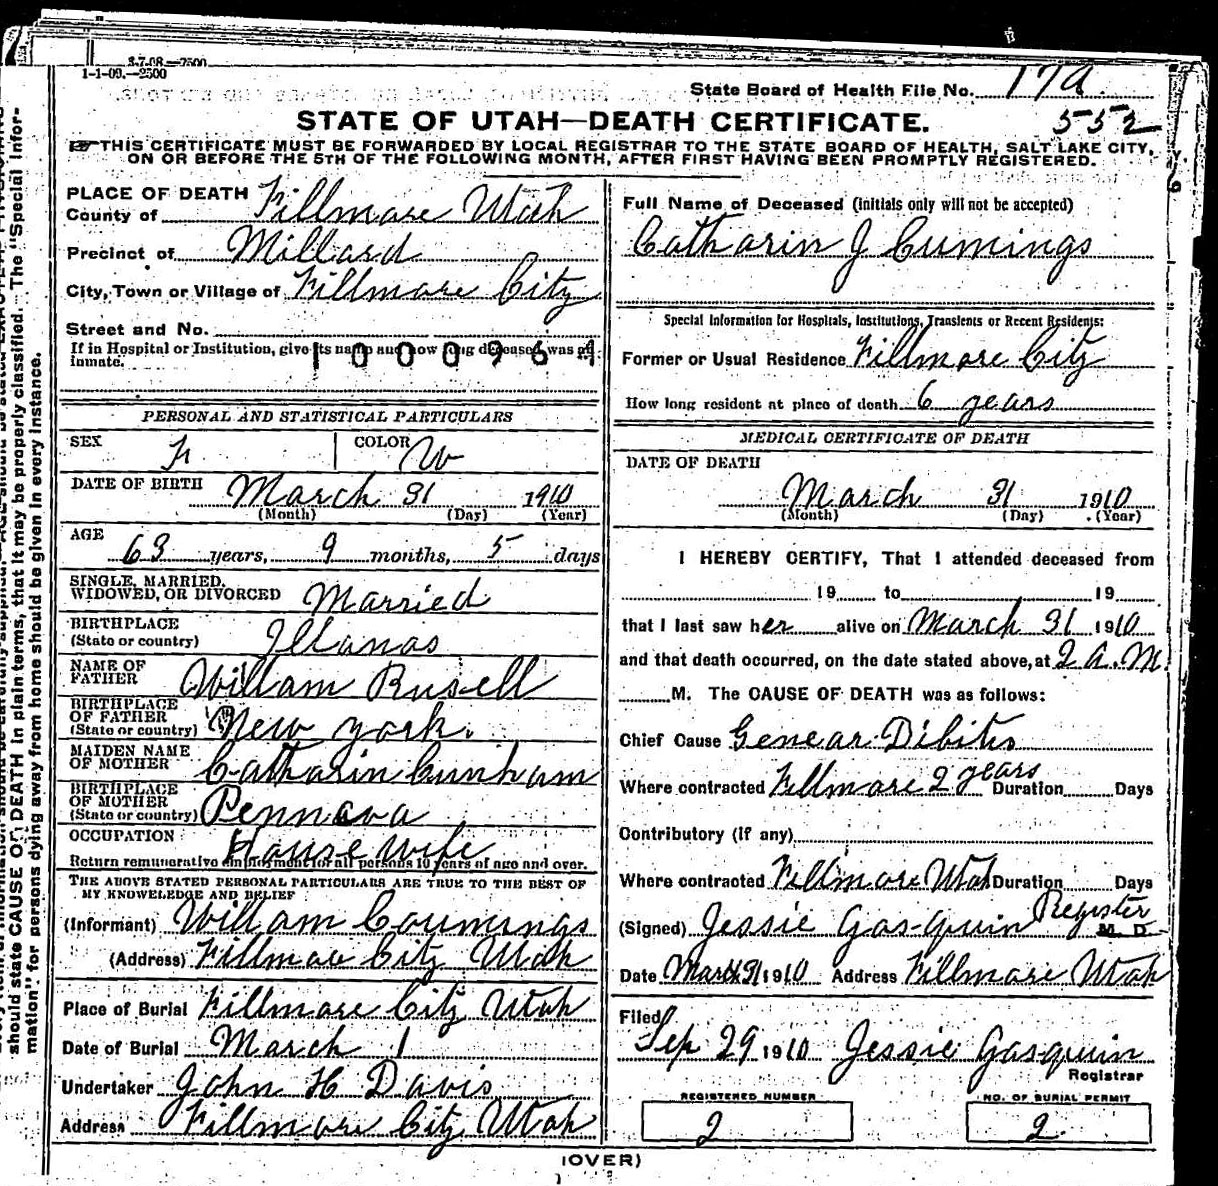 3-7-08.—2500
1-1-09.—2500
State Board of Health File No. 17a
552
STATE OF UTAH—DEATH CERTIFICATE.
THIS CERTIFICATE MUST BE FORWARDED BY LOCAL REGISTRAR TO THE STATE BOARD OF HEALTH, SALT LAKE CITY,
ON OR BEFORE THE 5TH OF THE FOLLOWING MONTH, AFTER FIRST HAVING BEEN PROMPTLY REGISTERED.
PLACE OF DEATH
County of Fillmore Utah
Precinct of Millard
City, Town or Village of Fillmore City
Street and No.
If in Hospital or Institution, give its name and how long deceased was an
inmate.
1000964
PERSONAL AND STATISTICAL PARTICULARS
SEX F COLOR W
DATE OF BIRTH March 31 1910
(Month) (Day) (Year)
AGE 63 years, 9 months, 5 days
SINGLE, MARRIED,
WIDOWED, OR DIVORCED Married
BIRTHPLACE
(State or country) Illanas
NAME OF
FATHER William Rusell
BIRTHPLACE
OF FATHER
(State or country) New york.
MAIDEN NAME
OF MOTHER Catharin Cunham
BIRTHPLACE
OF MOTHER
(State or country) Pennava
OCCUPATION House wife
Return remunerative employment for all persons 10 years of age and over.
THE ABOVE STATED PERSONAL PARTICULARS ARE TRUE TO THE BEST OF
MY KNOWLEDGE AND BELIEF
(Informant) William Coumings
(Address) Fillmoe City Utah
Place of Burial Fillmore City Utah
Date of Burial March 1
Undertaker John H Davis
Address Fillmore City Utah
Full Name of Deceased (initials only will not be accepted)
Catharin J Cumings
Special Information for Hospitals, Institutions, Transients or Recent Residents:
Former or Usual Residence Fillmore City
How long resident at place of death 6 years
MEDICAL CERTIFICATE OF DEATH
DATE OF DEATH
March 31 1910
(Month) (Day) (Year)
I HEREBY CERTIFY, That I attended deceased from
19 to 19
that I last saw her alive on March 31 1910
and that death occurred, on the date stated above, at 2 a.m.
M. The CAUSE OF DEATH was as follows:
Chief Cause Genear Dibites
Where contracted Fillmore 2 years Duration Days
Contributory (if any)
Where contracted Fillmore Utah Duration Days
(Signed) Jessie Gasquin Register M. D.
Date March 31 1910 Address Fillmore Utah
Filed
Sep 29 1910 Jessie Gasquin
Registrar
REGISTERED NUMBER
2
NO. OF BURIAL PERMIT
2
(OVER)
should state CAUSE OF DEATH in plain terms, that it may be properly classified. The "Special Infor-
mation" for persons dying away from home should be given in every instance.